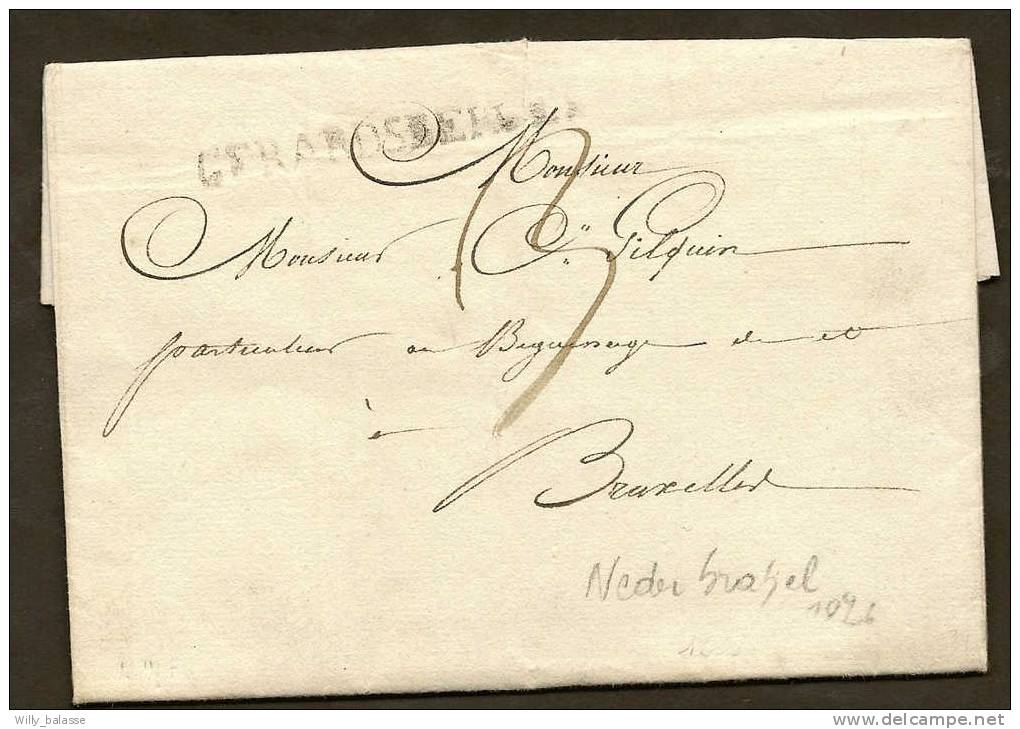 GERARDSBERGEN
Monsieur
Monsieur C.n Gilquin
particulier au Beguinage de et
à
Bruxelles
Nederbrakel
1826
Willy_balasse
delcampe.net